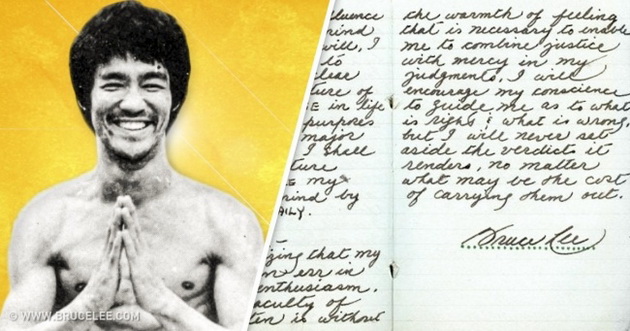 fluence
mind
will, I
to
clear
ture of
E in life
purposes
major
I shall
ture
E my
mind by
AILY.
izing that my
n err in
enthusiasm,
aculty of
ten is without
the warmth of feeling
that is necessary to enable
me to combine justice
with mercy in my
judgments, I will
encourage my conscience
to guide me as to what
is right & what is wrong,
but I will never set
aside the verdicts it
renders, no matter
what may be the cost
of carrying them out.
Bruce Lee
© WWW.BRUCELEE.COM